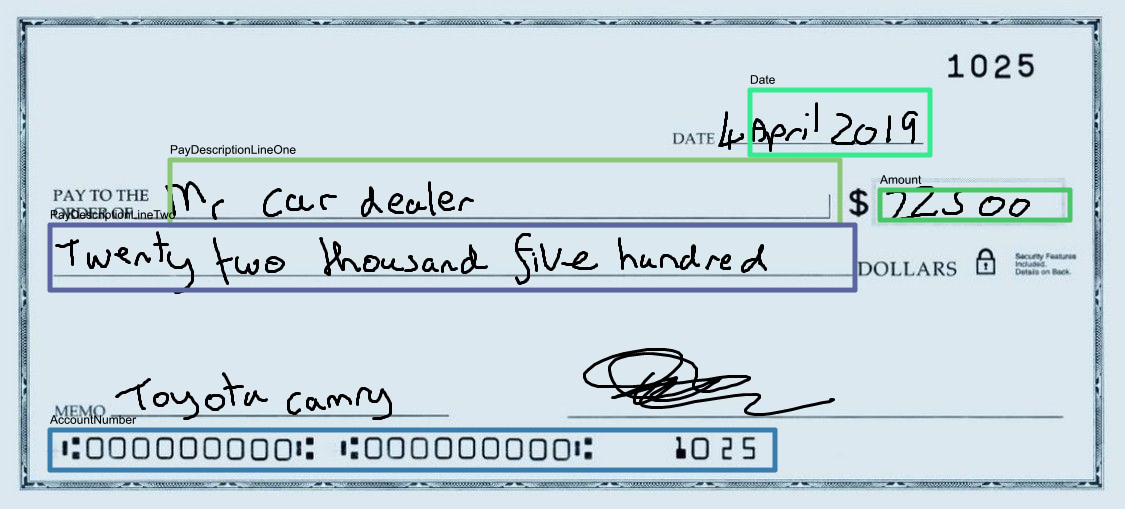 1025
Date
DATE 4 April 2019
PayDescriptionLineOne
Amount
PAY TO THE
ORDER OF Mr car dealer $ 22500
PayDescriptionLineTwo
Twenty two thousand five hundred DOLLARS
Security Features
Included.
Details on Back.
MEMO Toyota camry
AccountNumber
⑆000000000⑆ ⑆000000000⑆ 1025